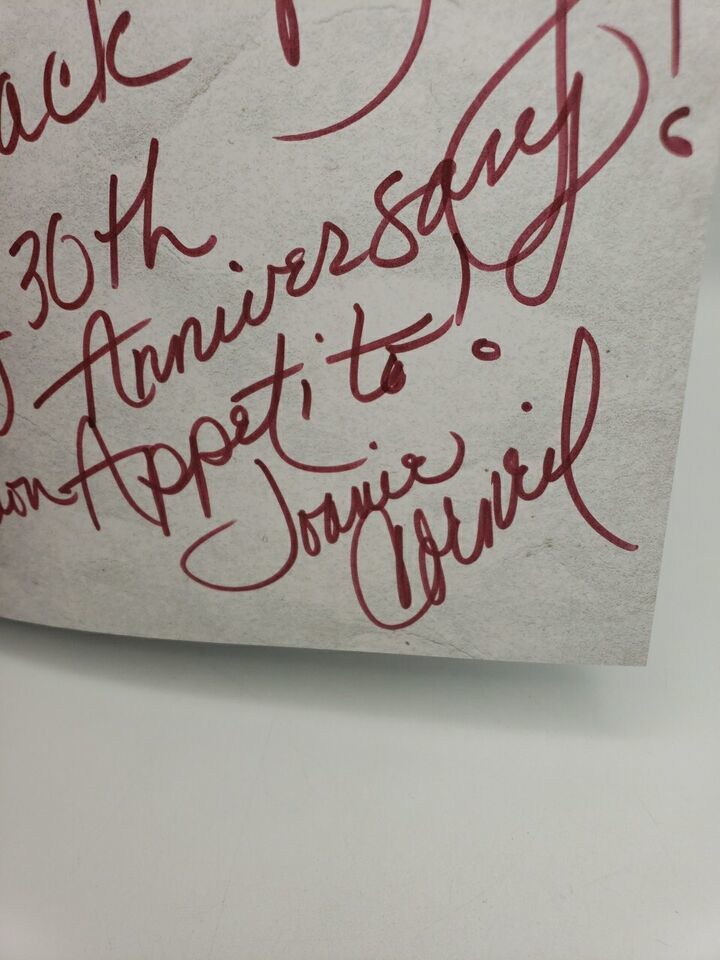 ack
30th
Anniversary!
on Appetito.
Joanie